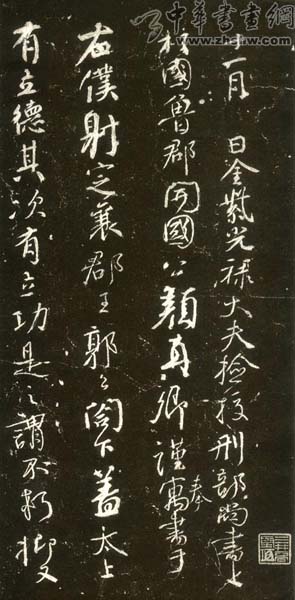 中華書畫網
www.zhshw.com
十一月 日金紫光祿大夫檢校刑部尚書上
柱國魯郡開國公顏真卿謹奉寓書于
右僕射定襄郡王郭公閣下蓋太上
有立德其次有立功是之謂不朽抑又